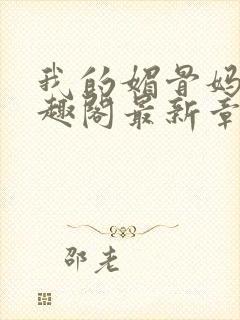 我的媚骨妈
趣阁最新章
邵老